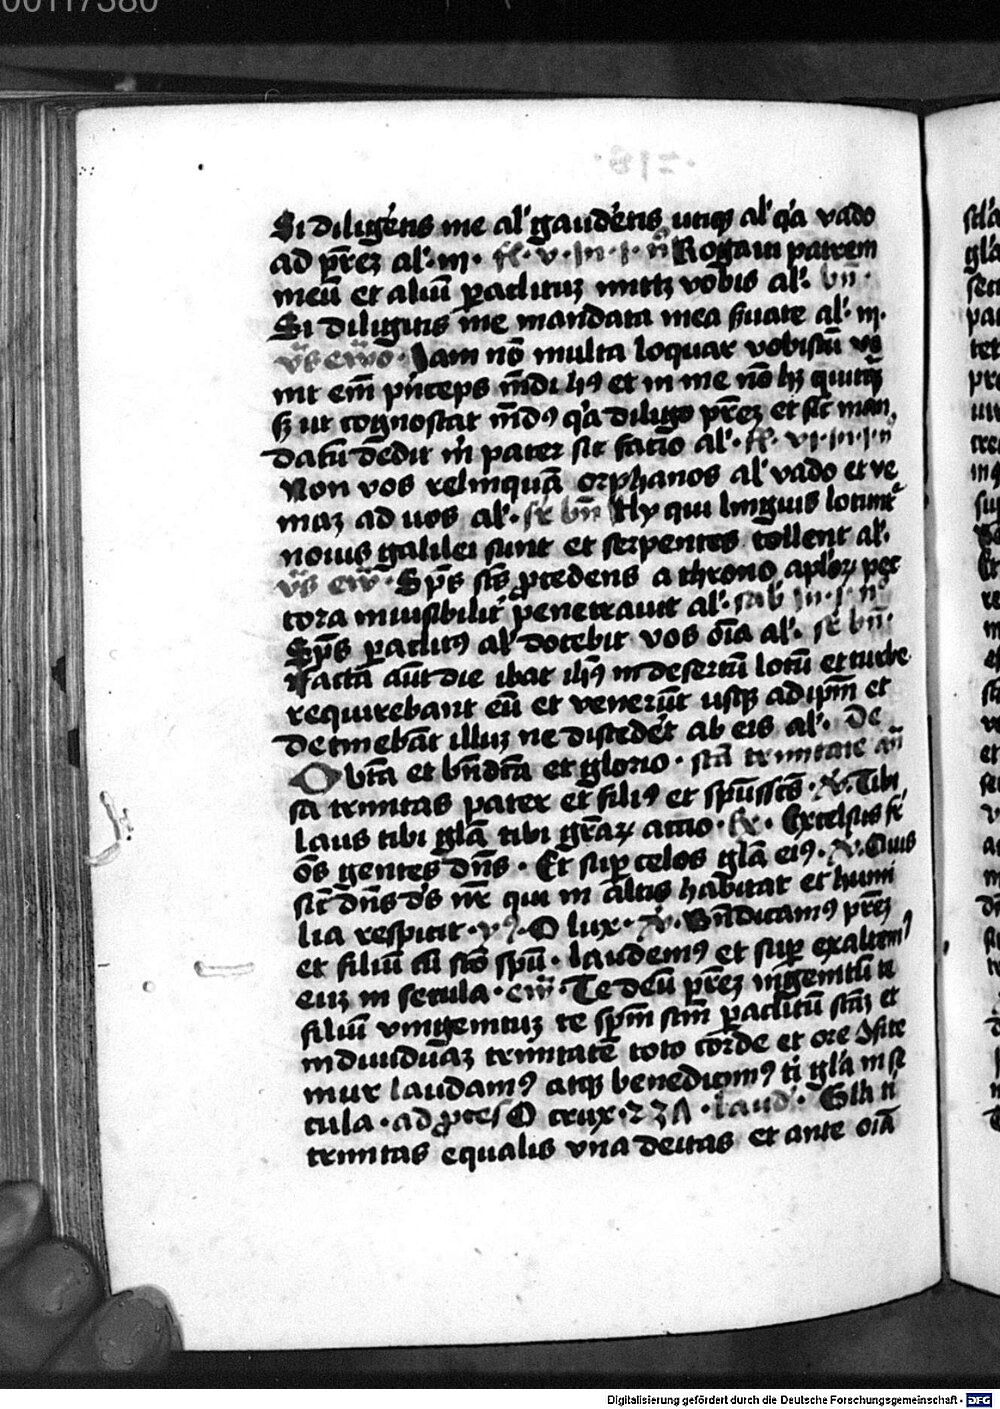 00117380
Si diligeretis me al' gauderetis utiqꝫ al' q'a vado
ad p̄rez al'. m. fr̄. v. in. j. n̄ Rogavi patrem
meū et aliuꝫ ꝑaclituꝫ mittꝫ vobis al'. bn̄.
Si diligitis me mandata mea ẜuate al'. m.
v̄s ew̄o. Iam nō multa loquar vobiscū ve
nit em̄ p'nceps mūdi hꝰ et in me nō hꝫ quitꝙ̄
sꝫ ut cognoscat mūdꝰ q'a diligo p̄rez et sic̄ man
datū dedit m̄ pater sic facio al'. fr̄. vi. in. j. n̄
Non vos relinquā orphanos al' vado et ve
niaꝫ ad uos al'. sr̄ bn̄ Hy qui linguis locunt'
novis galilei sunt et serpentes tollent al'.
v̄s ew̄. Sp̄s sc̄s ꝓcedens a throno aplorꝝ pec
tora invisibilit' penetravit al'. sab in. j. n̄
Sp̄s ꝑaclitꝰ al' docebit vos oīa al'. sr̄ bn̄.
Facta aūt die ibat ih̄ꝰ in desertū locū et turbe
requirebant eū et venerūt usqꝫ ad ip̄m et
detinebāt illuꝫ ne discederēt ab eis al'. De
sc̄a trinitate an̄
O bt̄a et bn̄dc̄a et gl'orio. sc̄a
trinitas pater et filiꝰ et sp̄ussc̄s. ꝟ. Tibi
laus tibi gl'ā tibi gr̄arꝝ actio. hx. Excelsus sr̄
ōs gentes dn̄s. Et suꝑ celos gl'ā eiꝰ. ꝟ. Quis
sic̄ dn̄s ds̄ nr̄ qui in altis habitat et humi
lia respicit. yꝰ. O lux. ꝟ. Bn̄dicamꝰ p̄rez
et filiū cū sc̄o sp̄u. laudemꝰ et suꝑ exaltemꝰ
euꝫ in secula. ew̄. Te deū p̄rez ingenitū te
filiū vnigenituꝫ te sp̄m sc̄m ꝑaclitū sc̄aꝫ et
individuaꝫ trinitatē toto corde et ore ꝯfite
mur laudamꝰ atqꝫ benedicimꝰ ti gl'a in se
cula. ad ꝓces O crux. 232. laud'. Gl'ia ti
trinitas equalis vna deitas et ante oīa
Digitalisierung gefördert durch die Deutsche Forschungsgemeinschaft - DFG